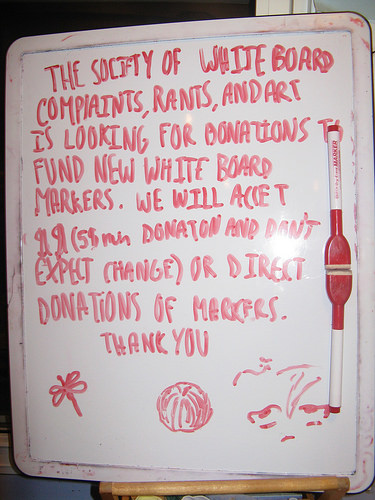 THE SOCITY OF WHITE BOARD
COMPLAINTS, RANTS, AND ART
IS LOOKING FOR DONATIONS TO
FUND NEW WHITE BOARD
MARKERS. WE WILL ACCET
$$ (5$ min DONATON AND DON'T
EXPECT CHANGE) OR DIRECT
DONATIONS OF MARKERS.
THANK YOU
MARKER